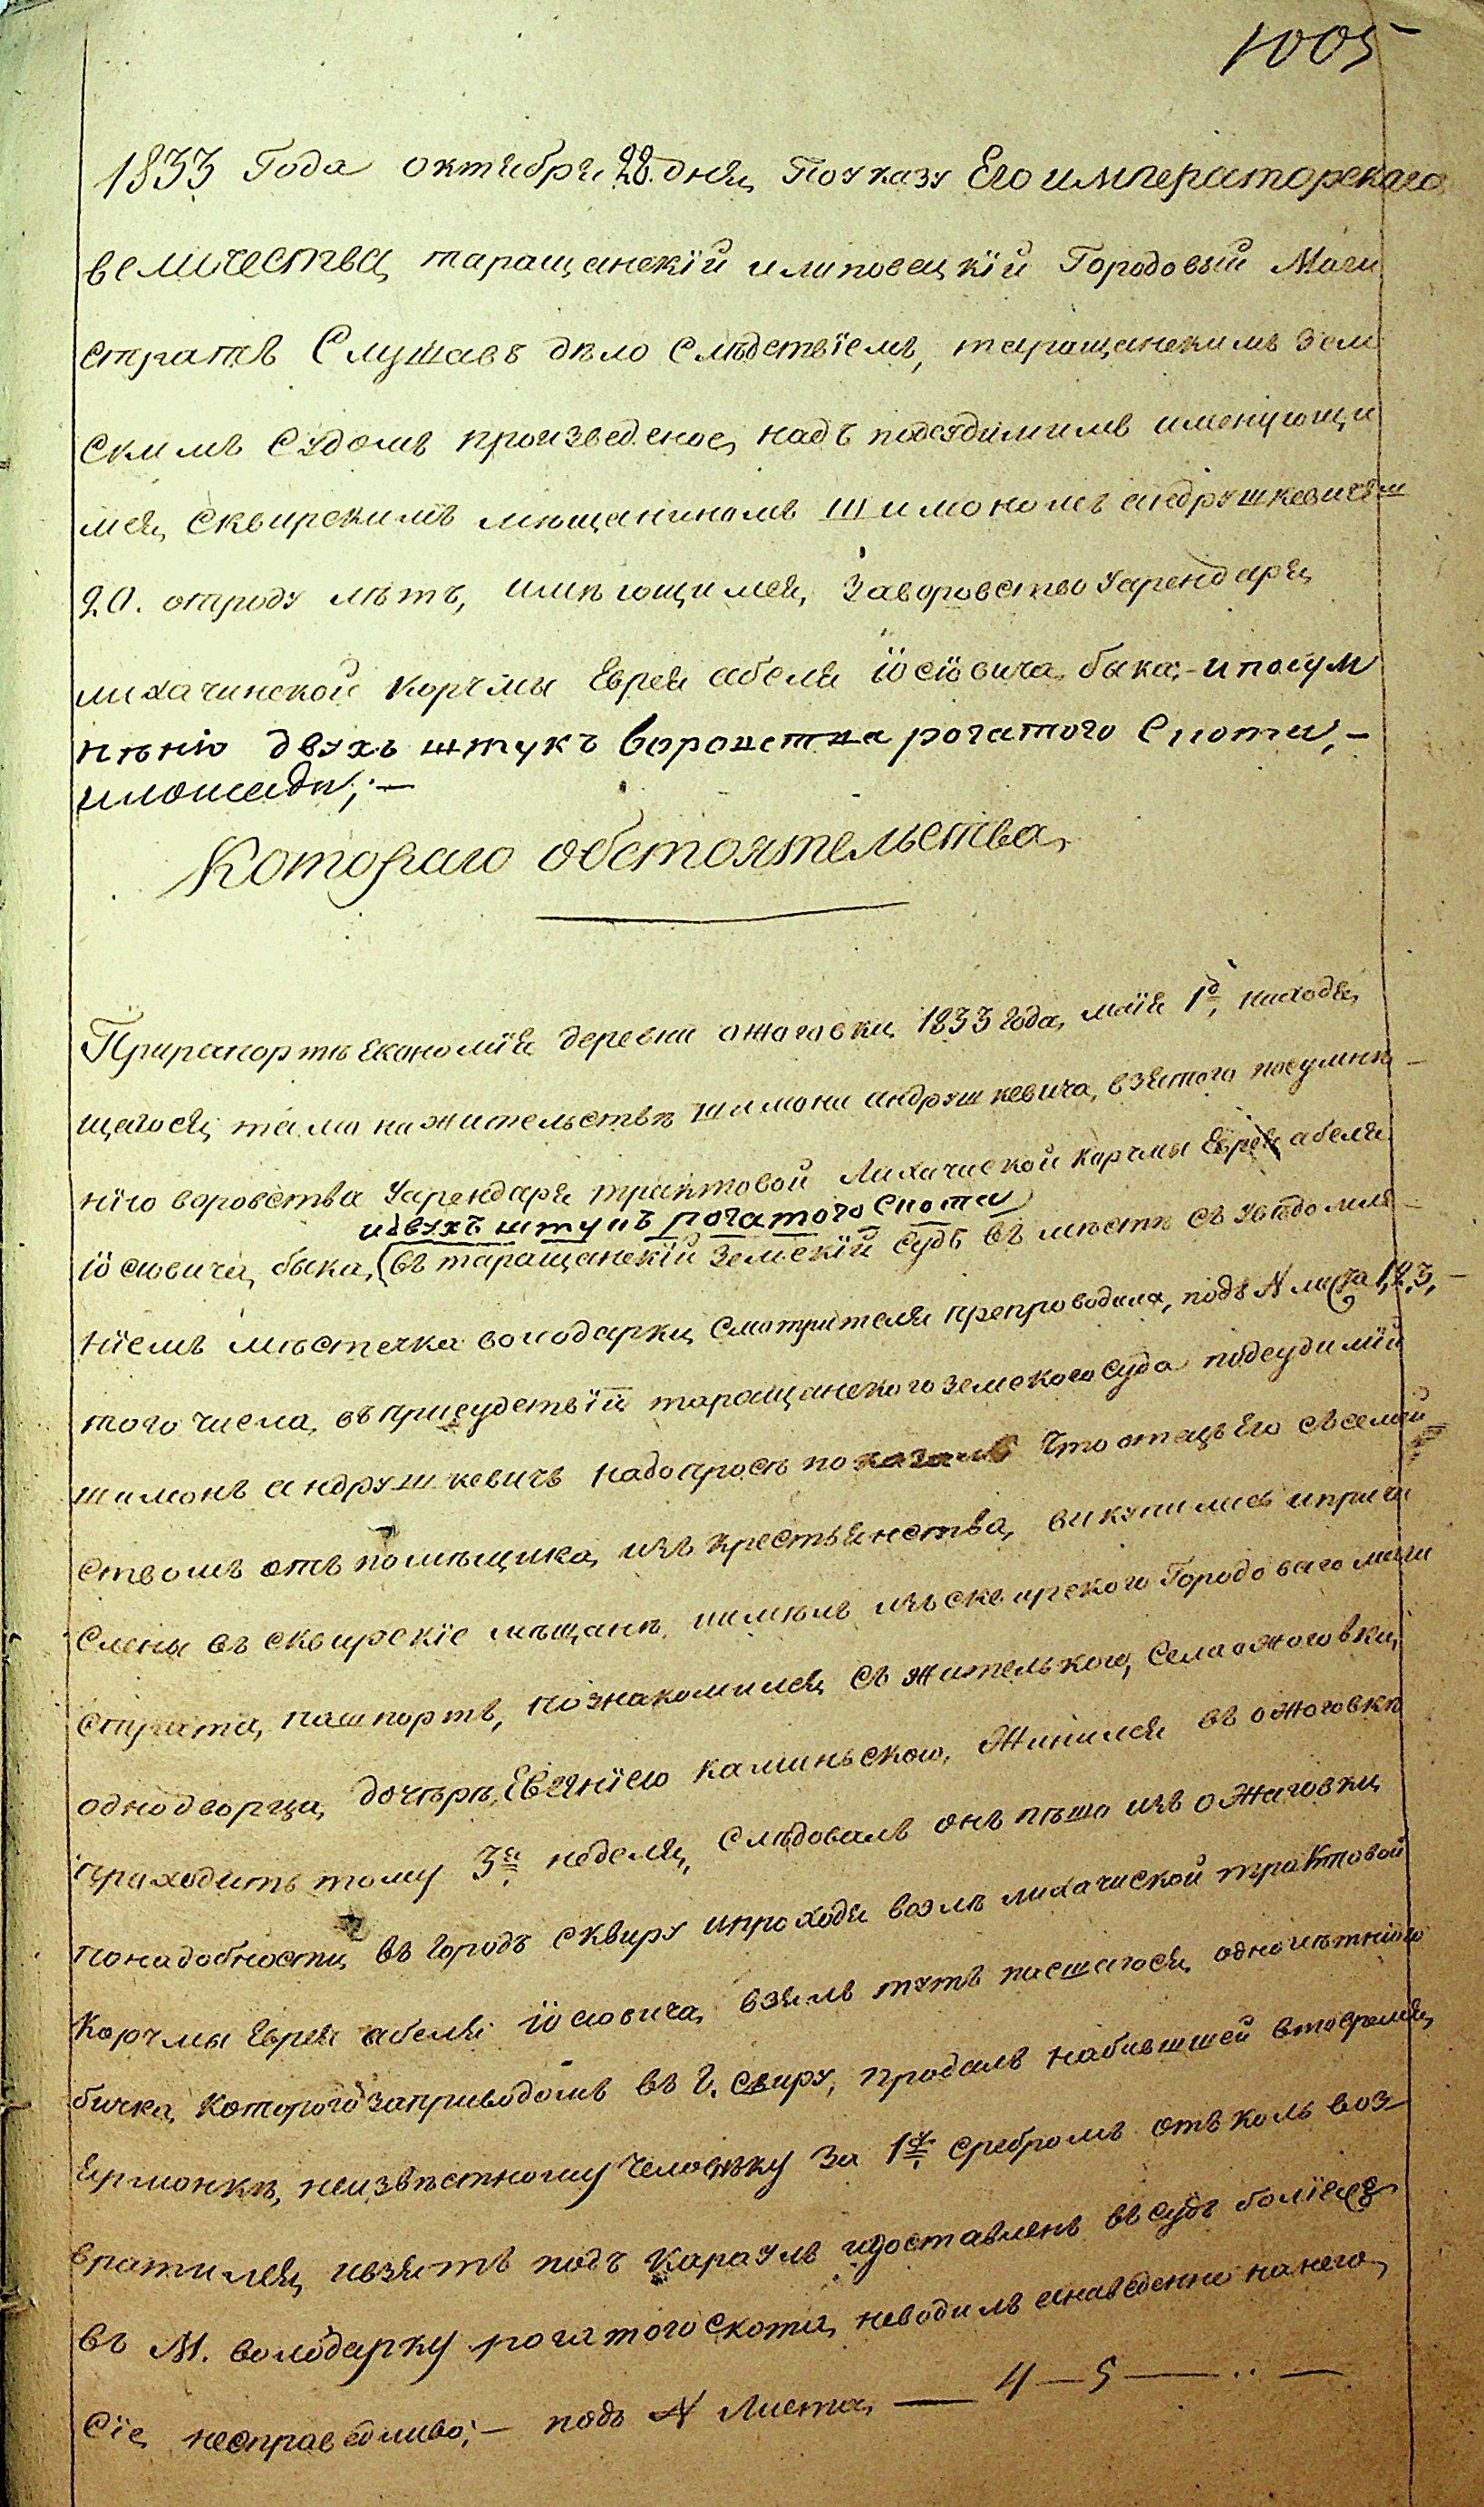 1005
1833 Года октября 28. дня, По указу Его императорскаго
величества, таращанскїй и липовецкїй Городовый Маги
стратъ Слушавъ дѣло Слѣдствїемъ, таращанскимъ Зем
скимъ Судомъ произведеное, надъ подсудимимъ именующи
мся, Сквирскимъ мѣщаниномъ Шимономъ андрушкевичемъ
20. отроду лѣтъ, имѣющимся, За воровство у арендаря,
лихачинской Корчмы Еврея абеля їосїовича, быка,- и по сум
нѣнїю двухъ штукъ воровства рогатого Скота,-
и лошади;-
Котораго обстоятельства,
При рапортѣ Економїя деревни ожоговки, 1833 года, маїя 1го, находя,
щагося, тамо на жительствѣ шимона андрушкевича, взятого по сумнѣ-
нїю воровства у арендаря трактовой Лихачиской корчмы Еврея абеля
и двухъ штукъ рогатого скота
їосїовича, быка, (въ таращанскїй Земскїй Судъ въ мѣстѣ съ увѣдомле-
нїемъ мѣстечка володарки, Смотрителя препроводила, подъ N листа 1, 2, 3,-
того числа, въ присудствїи таращанского земского суда подсудимїй
шимонъ андрушкевичъ на допросѣ показалъ Что отецъ Его съ семей
ствомъ отъ помѣщика, изъ крестьянства, викупились и причи
слены въ сквирскїе мѣщанѣ, и имѣлъ изъ сквирского Городоваго маги
страта, пашпортъ, познакомился, съ жителькою, Села ожоговки,
однодворца, дочѣрѣ, Евгенїею каминьскою, Жинился въ ожоговкѣ
приходитъ тому 3я неделя, Слѣдовалъ онъ пѣшо изъ ожаговки,
по надобности, въ городъ сквиру и проходя возлѣ лихачиской трактовой
Корчмы Еврея абеля їосїовича, взялъ тутъ пасшагося, однолѣтнїого
бичка, Которого за приводомъ въ г. Свиру, продалъ на бившей в то время,
Ярмонкѣ, неизвѣстному Человѣку За 1 Сребромъ отъ коль воз-
вратился, и взятъ подъ Караулъ и доставленъ въ судъ болїе
въ М. володарку рогатого Скота, неводилъ а наведенно на него,
Сїе, несправедливо;- подъ N Листа, — 4 — 5 — .. —